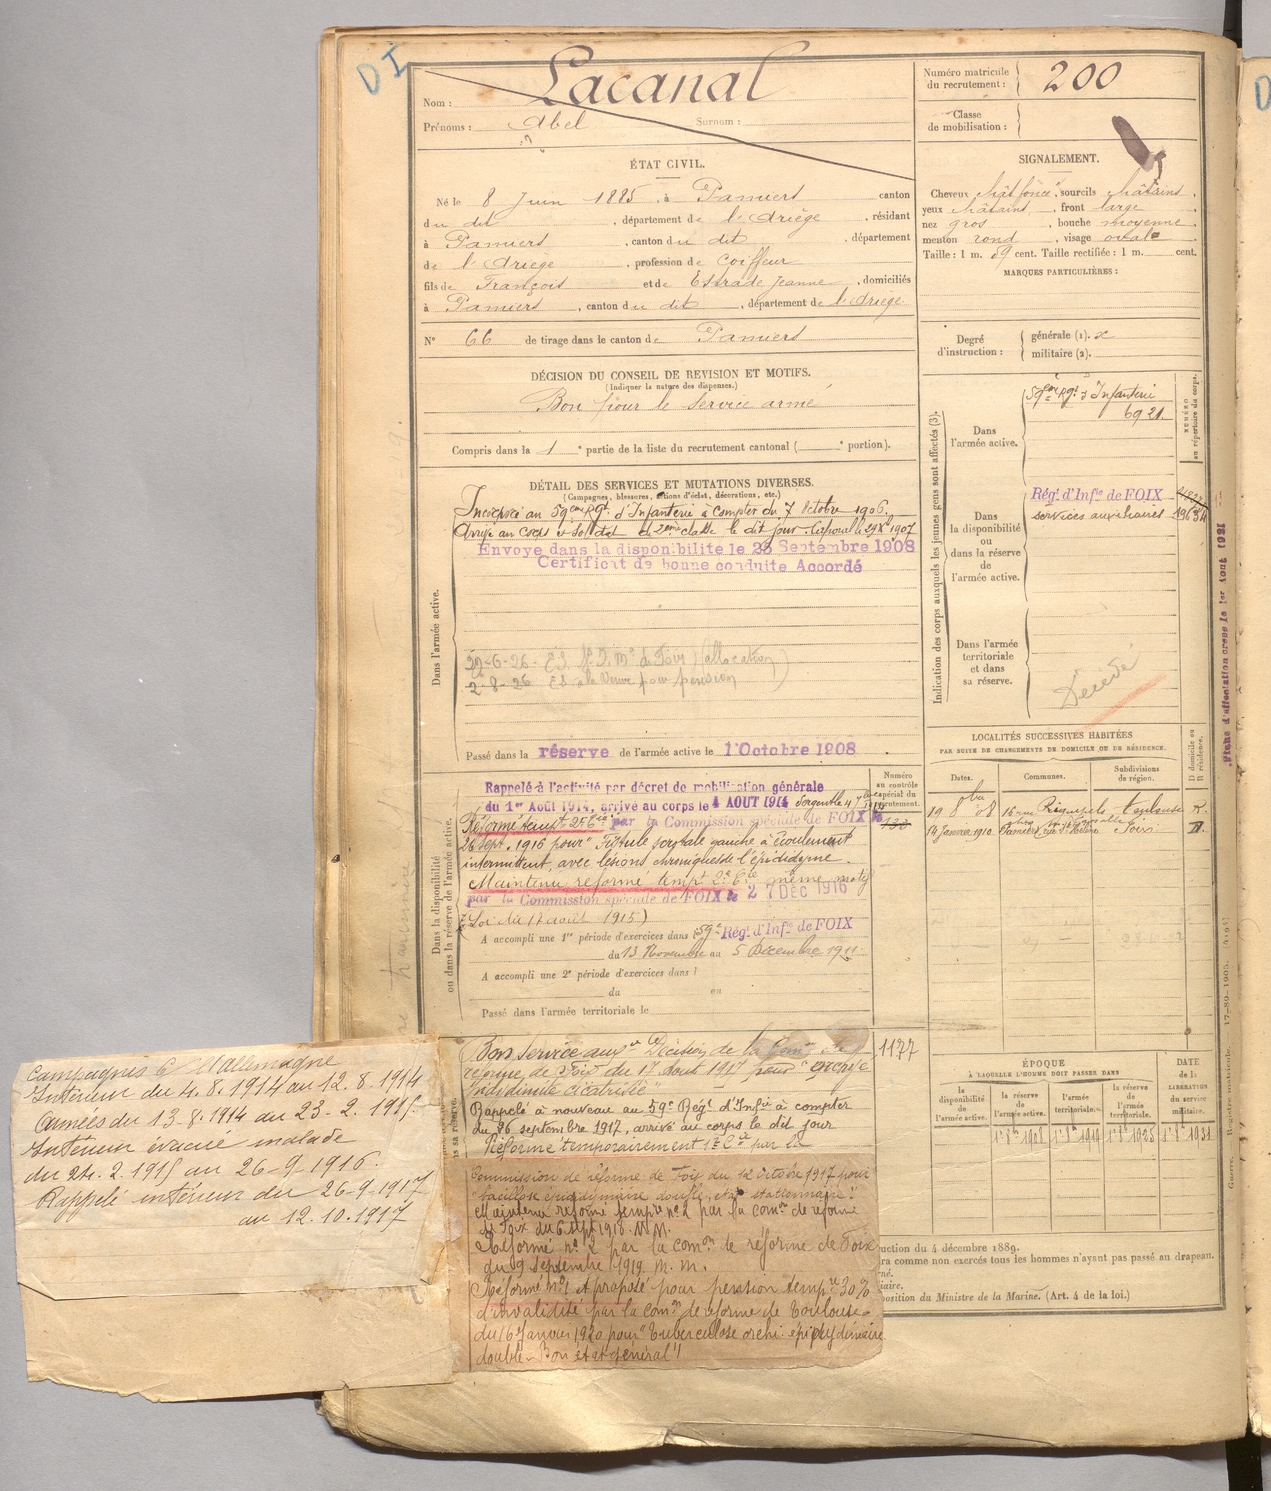 DI
Nom : Lacanal
Prénoms : Abel Surnom :
Numéro matricule du recrutement : 200
Classe de mobilisation :
ÉTAT CIVIL.
Né le 8 Juin 1885, à Pamiers canton
du dit, département de l'Ariège, résidant
à Pamiers, canton du dit, département
de l'Ariège, profession de Coiffeur
fils de François et de Estrade Jeanne, domiciliés
à Pamiers, canton du dit, département de l'Ariège.
N° 66 de tirage dans le canton de Pamiers
SIGNALEMENT.
Cheveux chât foncé, sourcils châtains,
yeux châtains, front large
nez gros, bouche moyenne
menton rond, visage ovale
Taille : 1 m. 59 cent. Taille rectifiée : 1 m. cent.
MARQUES PARTICULIÈRES :
Degré d'instruction : générale (1). militaire (2).
DÉCISION DU CONSEIL DE REVISION ET MOTIFS.
(Indiquer la nature des dispenses.)
Bon pour le service armé
Compris dans la 1e partie de la liste du recrutement cantonal ( e portion).
DÉTAIL DES SERVICES ET MUTATIONS DIVERSES.
(Campagnes, blessures, actions d'éclat, décorations, etc.)
Dans l'armée active.
Incorporé au 59eme Rgt d'Infanterie à compter du 7 Octobre 1906.
Arrivé au corps et soldat de 2eme classe le dit jour. Caporal le 1907
Envoyé dans la disponibilité le 25 Septembre 1908
Certificat de bonne conduite Accordé
29-6-26 - ES de Foix (allocation)
2-8-26 ES à la Veuve pour pension
Passé dans la réserve de l'armée active le 1 Octobre 1908
Indication des corps auxquels les jeunes gens sont affectés (3).
NUMÉRO au répertoire du corps.
Dans l'armée active.
59eme Rgt d'Infanterie
6921.
Dans la disponibilité ou dans la réserve de l'armée active.
Régt d'Infie de FOIX
services auxiliaires
Dans l'armée territoriale et dans sa réserve.
Décédé
LOCALITÉS SUCCESSIVES HABITÉES
PAR SUITE DE CHANGEMENTS DE DOMICILE OU DE RÉSIDENCE.
Dates. Communes. Subdivisions de région. D domicile ou R résidence.
19 8bre 08 16 rue Riquepels Toulouse R.
14 Janvier 1910. Pamiers Foix D.
Dans la disponibilité ou dans la réserve de l'armée active.
Numéro au contrôle spécial du recrutement.
Rappelé à l'activité par décret de mobilisation générale
du 1er Août 1914, arrivé au corps le 4 AOUT 1914 Sergent le
Réformé tempt par la Commission spéciale de FOIX le
26 Sept. 1916 pour "Fistule scrotale gauche à écoulement
intermittent, avec lésions chroniques de l'épididyme.
Maintenu réformé tempt même motif
par la Commission spéciale de FOIX le 27 DEC 1916
(Loi du 17 août 1915)
A accompli une 1re période d'exercices dans 59e Régt d'Infie de FOIX
du 13 Novembre au 5 Décembre 1911.
A accompli une 2e période d'exercices dans l
du au
Passé dans l'armée territoriale le
1177
Bon service auxre Décision de la Comon de
réforme de Foix du 17 Août 1917 pour
Rappelé à nouveau au 59e Régt d'Infie à compter
du 26 septembre 1917, arrivé au corps le dit jour
Réformé temporairement par la
Commission de réforme de Foix du 12 octobre 1917 pour
double, état stationnaire."
Maintenu réformé tempre n° 2 par la comon de réforme
de Foix du 6 sept 1918. M.M.
Réformé n° 2 par la comon de réforme de Foix
du 9 septembre 1919. m. m.
Réformé n° 1 et proposé pour pension tempre 30%
d'invalidité par la comon de réforme de Toulouse
du 16 Janvier 1920 pour "tuberculose orchi-épididymaire
double - Bon état général"
Campagnes c. l'Allemagne
Intérieur du 4.8.1914 au 12.8.1914
Armées du 13-8-1914 au 23-2.1915.
Intérieur évacué malade
du 24.2.1915 au 26-9-1916.
Rappelé intérieur du 26-9-1917
au 12.10.1917
ÉPOQUE
A LAQUELLE L'HOMME DOIT PASSER DANS
la disponibilité de l'armée active. la réserve de l'armée active. l'armée territoriale. la réserve de l'armée territoriale. DATE de la LIBÉRATION du service militaire.
uction du 4 décembre 1889.
ra comme non exercés tous les hommes n'ayant pas passé au drapeau.
position du Ministre de la Marine. (Art. 4 de la loi.)